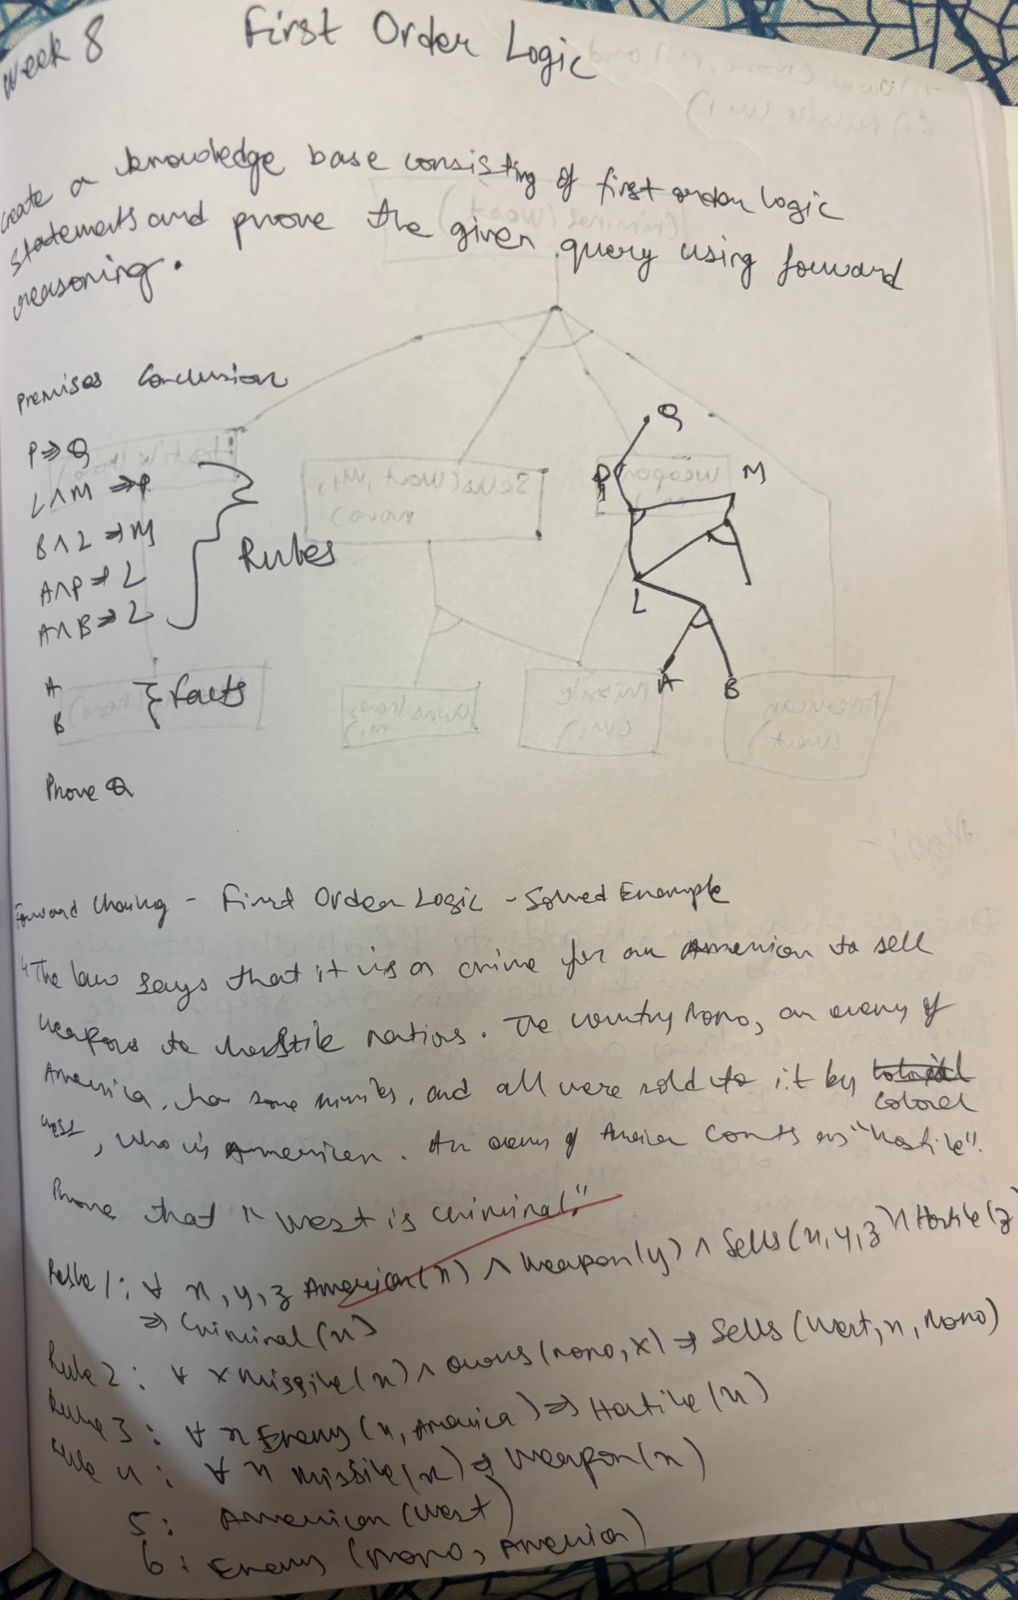 week 8
First Order Logic
create a knowledge base consisting of first order logic
statements and prove the given query using forward
reasoning.
Premises Conclusion
P ⇒ Q
L ∧ M ⇒ P
B ∧ L ⇒ M
A ∧ P ⇒ L
A ∧ B ⇒ L
Rules
A
B
Facts
Prove Q
Q
P
M
L
A
B
Forward Chaining - First Order Logic - Solved Example
"The law says that it is a crime for an American to sell
weapons to hostile nations. The country Nono, an enemy of
America, has some missiles, and all were sold to it by
Colonel
West, who is American. An enemy of America counts as "hostile".
Prove that "West is criminal."
Rule 1: ∀ x, y, z American(x) ∧ Weapon(y) ∧ Sells(x, y, z) ∧ Hostile(z)
⇒ Criminal(x)
Rule 2: ∀ x Missile(x) ∧ Owns(Nono, x) ⇒ Sells(West, x, Nono)
Rule 3: ∀ x Enemy(x, America) ⇒ Hostile(x)
Rule 4: ∀ x Missile(x) ⇒ Weapon(x)
5: American(West)
6: Enemy (Nono, America)